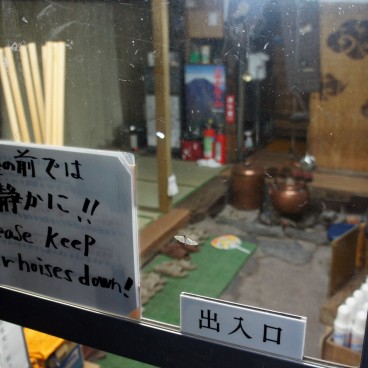 の前では
静かに!!
ease keep
r noises down!
出入口